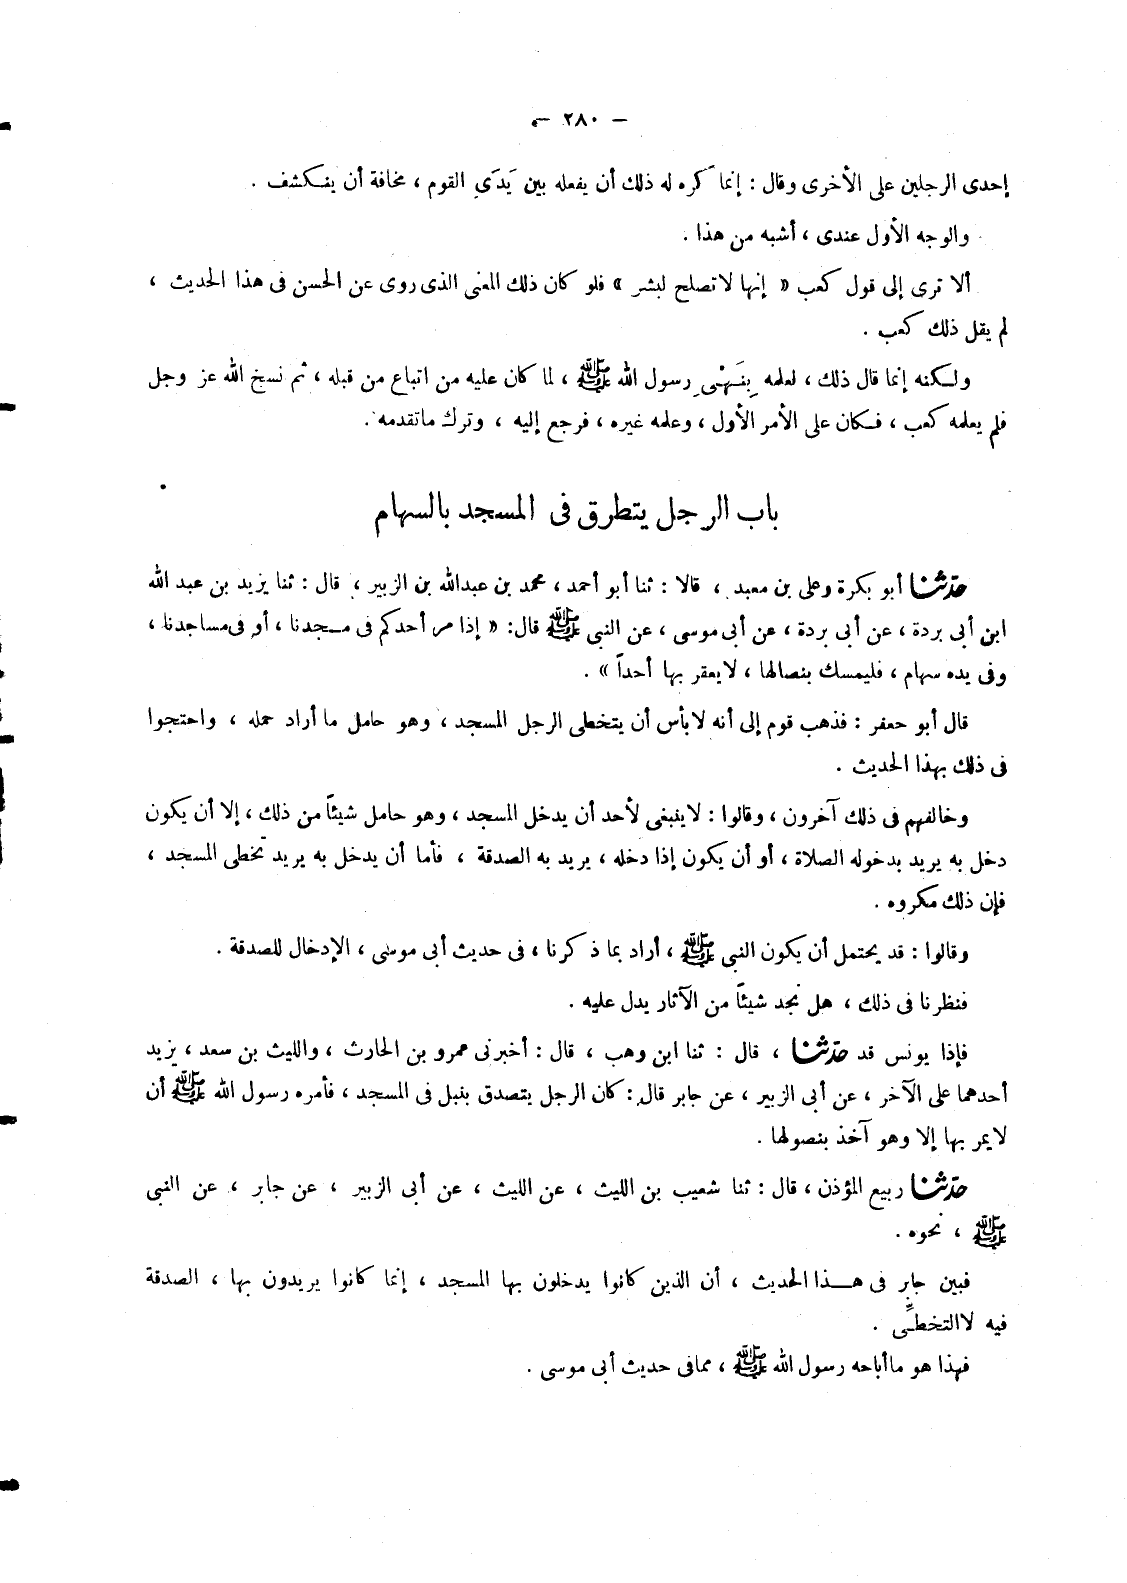 — ٢٨٠ —
إحدى الرجلين على الأخرى وقال : إنما كره له ذلك أن يفعله بين يَدَي القوم ، مخافة أن ينكشف .
والوجه الأول عندى ، أشبه من هذا .
ألا ترى إلى قول كعب « إنها لا تصلح لبشر » فلو كان ذلك المعنى الذى روى عن الحسن فى هذا الحديث ،
لم يقل ذلك كعب .
ولكنه إنما قال ذلك ، لعلمه بِنَهْىِ رسول الله ﷺ ، لما كان عليه من اتباع من قبله ، ثم نسخ الله عز وجل
فلم يعلمه كعب ، فكان على الأمر الأول ، وعلمه غيره ، فرجع إليه ، وترك ما تقدمه .
باب الرجل يتطرق فى المسجد بالسهام
حدّثنا أبو بكرة وعلى بن معبد ، قالا : ثنا أبو أحمد ، محمد بن عبدالله بن الزبير ، قال : ثنا يزيد بن عبد الله
ابن أبى بردة ، عن أبى بردة ، عن أبى موسى ، عن النبى ﷺ قال : « إذا مر أحدكم فى مسجدنا ، أو فى مساجدنا ،
وفى يده سهام ، فليمسك بنصالها ، لا يعقر بها أحداً » .
قال أبو جعفر : فذهب قوم إلى أنه لا بأس أن يتخطى الرجل المسجد ، وهو حامل ما أراد حمله ، واحتجوا
فى ذلك بهذا الحديث .
وخالفهم فى ذلك آخرون ، وقالوا : لا ينبغى لأحد أن يدخل المسجد ، وهو حامل شيئاً من ذلك ، إلا أن يكون
دخل به يريد بدخوله الصلاة ، أو أن يكون إذا دخله ، يريد به الصدقة ، فأما أن يدخل به يريد تخطى المسجد ،
فإن ذلك مكروه .
وقالوا : قد يحتمل أن يكون النبى ﷺ ، أراد بما ذكرنا ، فى حديث أبى موسى ، الإدخال للصدقة .
فنظرنا فى ذلك ، هل نجد شيئاً من الآثار يدل عليه .
فإذا يونس قد حدّثنا ، قال : ثنا ابن وهب ، قال : أخبرنى عمرو بن الحارث ، والليث بن سعد ، يزيد
أحدهما على الآخر ، عن أبى الزبير ، عن جابر قال : كان الرجل يتصدق بنبل فى المسجد ، فأمره رسول الله ﷺ أن
لا يمر بها إلا وهو آخذ بنصولها .
حدّثنا ربيع المؤذن ، قال : ثنا شعيب بن الليث ، عن الليث ، عن أبى الزبير ، عن جابر ، عن النبى
ﷺ ، نحوه .
فبين جابر فى هذا الحديث ، أن الذين كانوا يدخلون بها المسجد ، إنما كانوا يريدون بها ، الصدقة
فيه لا التخطِّى .
فهذا هو ما أباحه رسول الله ﷺ ، مما فى حديث أبى موسى .